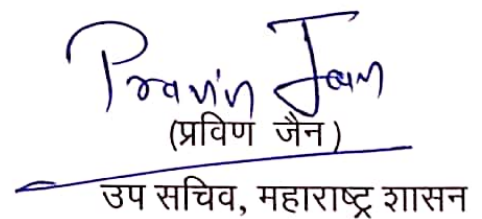 Pravin Jain
(प्रविण जैन)
उप सचिव, महाराष्ट्र शासन